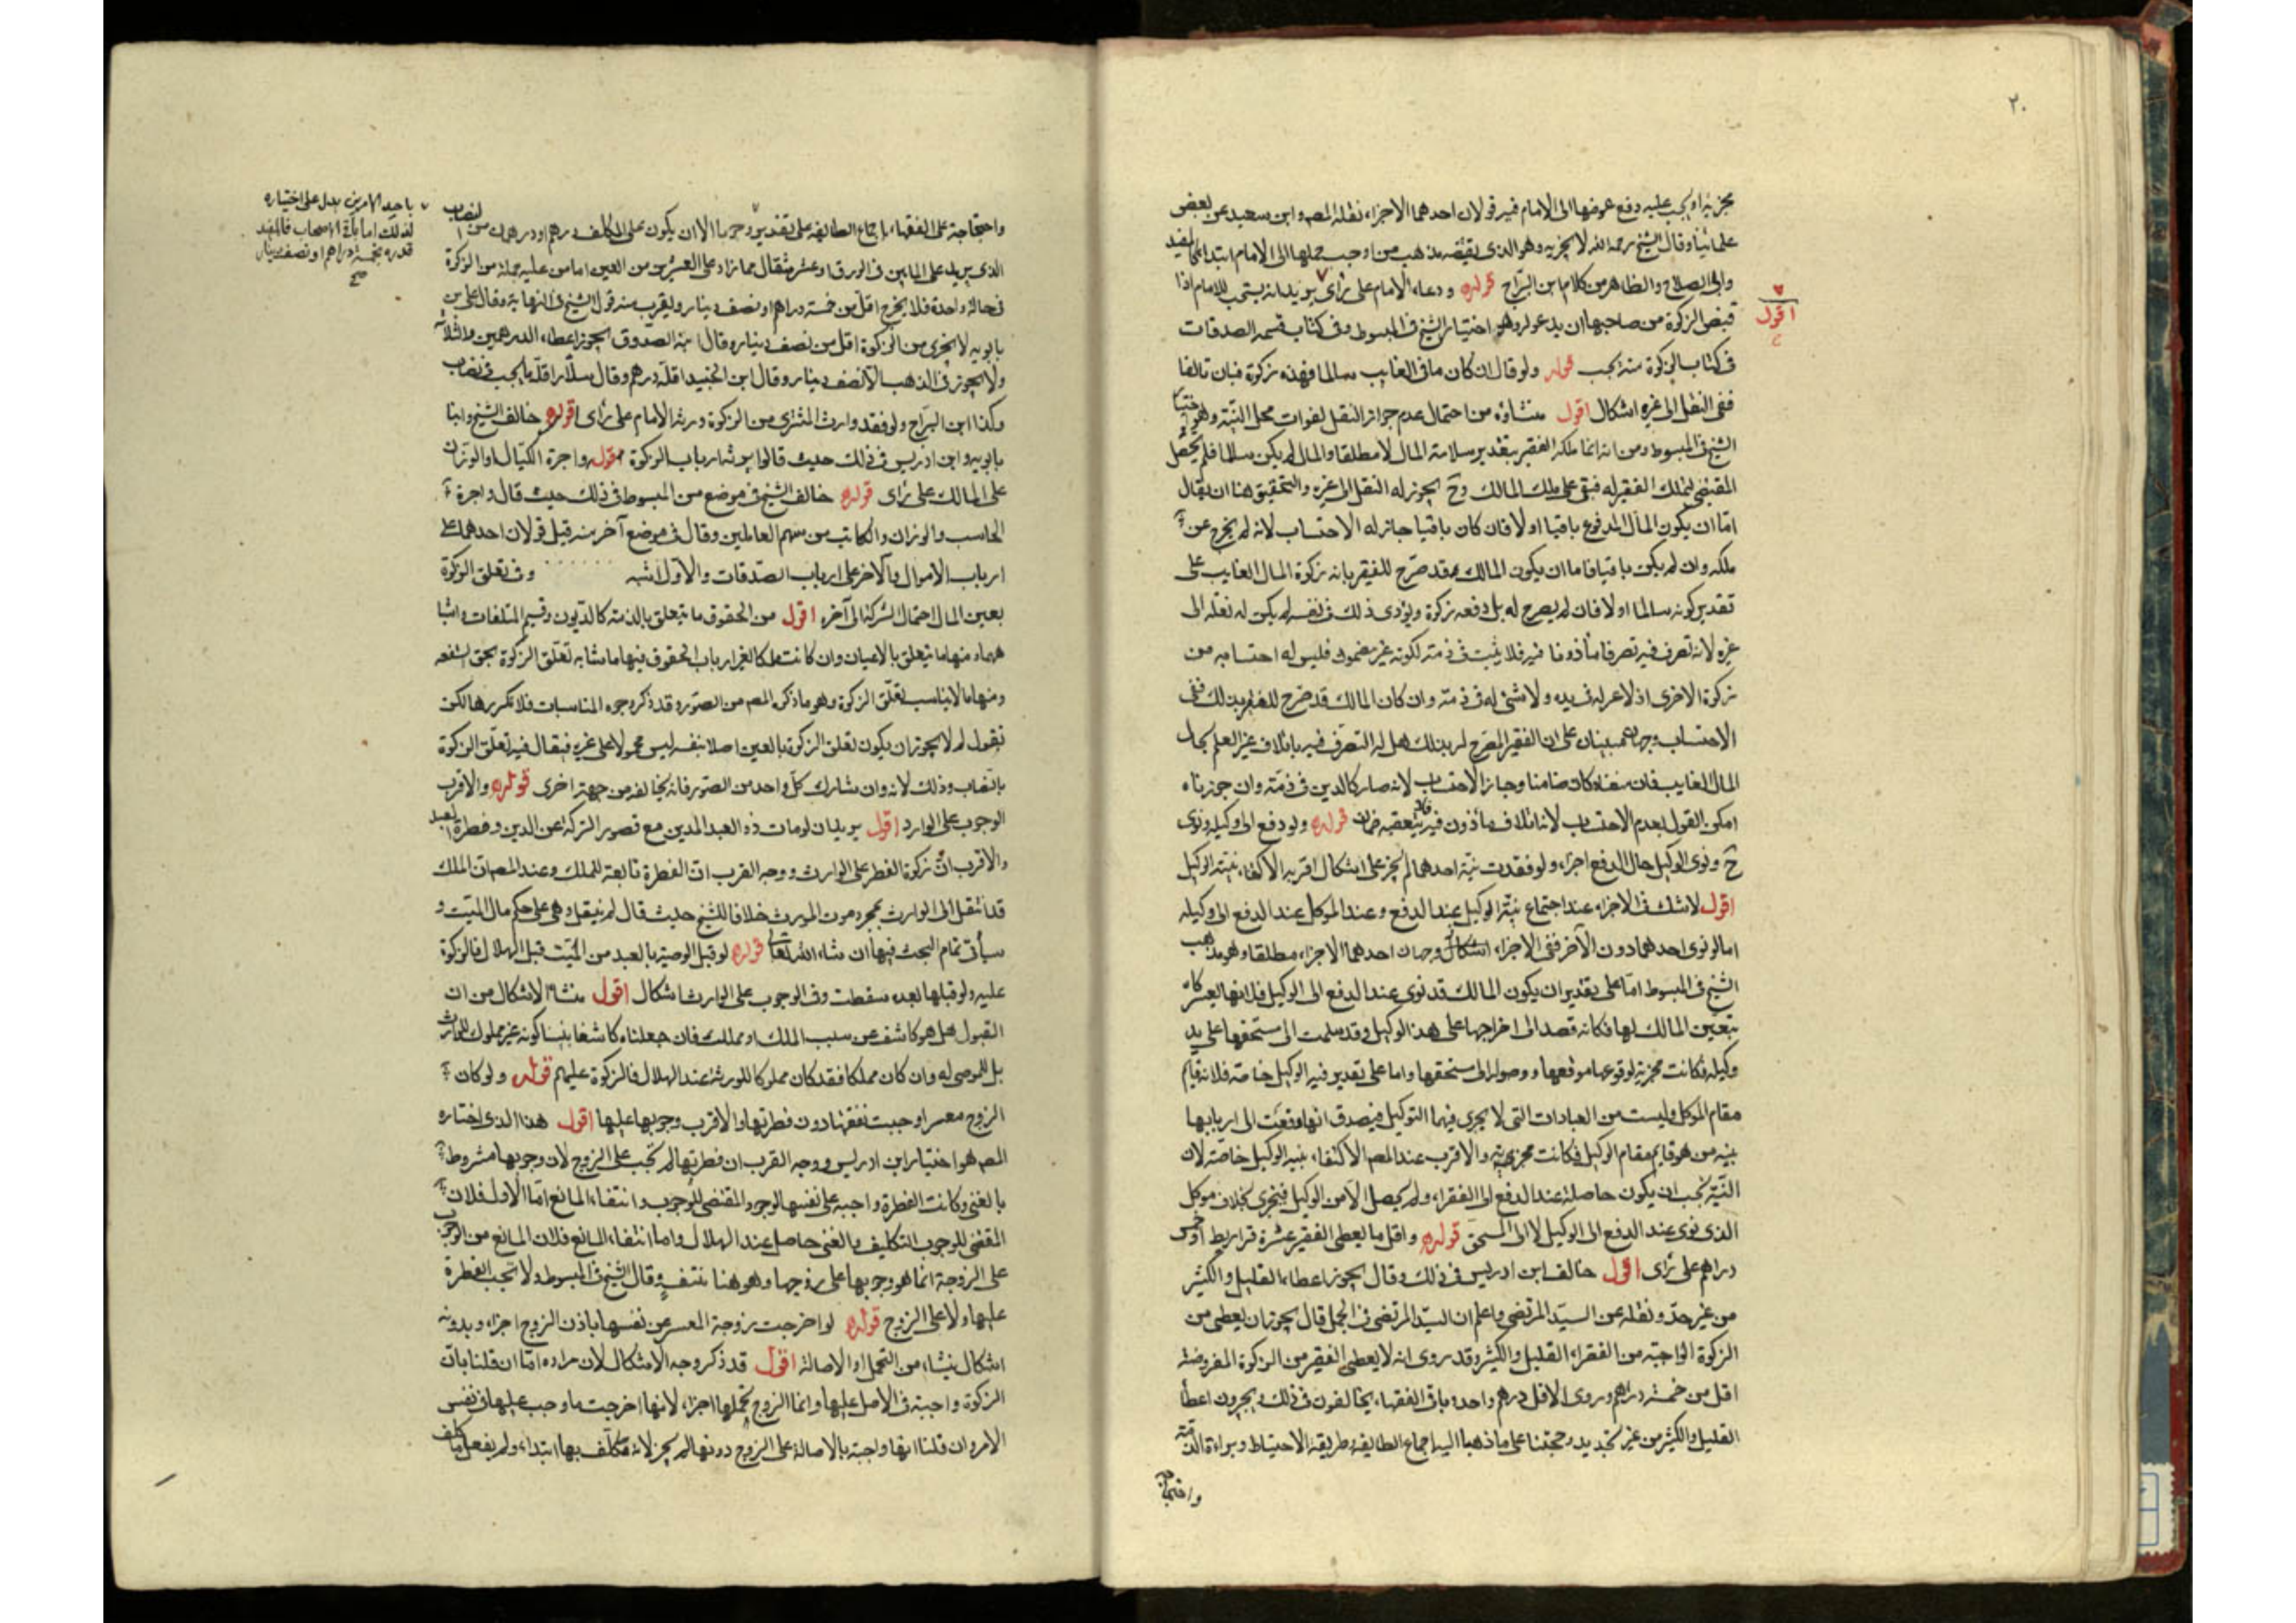 ٢٠
يجزيه او يجب عليه دفع عوضها الى الامام فيه قولان احدهما الاجزاء نقله المصم و ابن سعيد عن بعض
علمائنا وقال الشيخ رحمه الله لا يجزيه وهو الذى يقتضيه مذهب من اوجب حملها الى الامام ابتداء كالمفيد
وابى الصلاح والظاهر من كلام ابن البراج قوله ودعاء الامام على رأى يريد انه يستحب للامام اذا
اقول
قبض الزكوة من صاحبها ان يدعو له وهو اختيار الشيخ فى المبسوط وفى كتاب قسمة الصدقات
فى كتاب الزكوة منه يجب قوله ولو قال ان كان مالى الغايب سالما فهذه زكوة فبان تالفا
ففى النقل الى غيره اشكال اقول منشاؤه من احتمال عدم جواز النقل لفوات محل النية وهو اختيار
الشيخ فى المبسوط ومن انه انما ملكه الفقير بتقدير سلامة المال لا مطلقا والمال لم يكن سالما فلم يحصل
المقتضى لتملك الفقير له فبقى على ملك المالك وح يجوز له النقل الى غيره والتحقيق هنا ان يقال
اما ان يكون المال المدفوع باقيا او لا فان كان باقيا جاز له الاحتساب لانه لم يخرج عن
ملكه وان لم يكن باقيا فاما ان يكون المالك قد صرح للفقير بانه زكوة المال الغايب على
تقدير كونه سالما او لا فان لم يصرح له بل دفعه زكوة ونوى ذلك فى نفسه لم يكن له نقله الى
غيره لانه تصرف فيه تصرفا مأذونا فيه فلا يثبت فى ذمته لكونه غير مضمون فليس له احتسابه من
زكوة الاخرى اذ لا عين له فى يده ولا شئ له فى ذمته وان كان المالك قد صرح للفقير بذلك ففى
الاحتساب وجهان مبنيان على ان الفقير المصرح له بذلك هل له التصرف فيه باتلاف غير العلم بحال
المال الغايب فان منعناه كان ضامنا وجاز الاحتساب لانه صار كالدين فى ذمته وان جوزناه
امكن القول بعدم الاحتساب لانه اتلاف مأذون فيه فلا يتعقبه ضمان قوله ولو دفع الى وكيله ونوى
ح ونوى الوكيل حال الدفع اجزاء ولو فقدت نية احدهما لم يجز على اشكال اقربه الاكتفاء بنية الوكيل
اقول لا شك فى الاجزاء عند اجتماع نية الوكيل عند الدفع وعند الموكل عند الدفع الى وكيله
اما لو نوى احدهما دون الآخر ففى الاجزاء وجهان احدهما الاجزاء مطلقا وهو مذهب
الشيخ فى المبسوط اما على تقدير ان يكون المالك قد نوى عند الدفع الى الوكيل فلانها يصير زكاة
بتعيين المالك لها فكانه قصد الى اخراجها على هذا الوكيل وقد سلمت الى مستحقها على يد
وكيله فكانت مجزية لوقوعها موقعها ووصولها الى مستحقها واما على تقدير نية الوكيل خاصة فلانه قايم
مقام الموكل وليست من العبادات التى لا يجرى فيها التوكيل فيصدق انها وقعت الى اربابها
بنية من هو قايم مقام الوكيل فكانت مجزية والاقرب عند المصم الاكتفاء بنية الوكيل خاصة لان
النية يجب ان يكون حاصلة عند الدفع الى الفقراء ولم يحصل الا من الوكيل فيجزى بخلاف موكل
الذى نوى عند الدفع الى الوكيل لا الى المستحق قوله واقل ما يعطى الفقير عشرة قراريط او خمس
دراهم على رأى اقول خالف ابن ادريس فى ذلك وقال يجوز اعطاء القليل والكثير
من غير حد ونقله عن السيد المرتضى واعلم ان السيد المرتضى فى الجمل قال يجوز ان يعطى من
الزكوة الواجبة من الفقراء القليل والكثير وقد روى انه لا يعطى الفقير من الزكوة المفروضة
اقل من خمسة دراهم وروى الاقل درهم واحد وباقى الفقهاء يخالفون فى ذلك ويجيزون اعطا
القليل والكثير من غير تحديد وحجتنا على ما ذهبنا اليه اجماع الطايفة وطريقة الاحتياط وبراءة الذمة
واحتجاجه
واحتجاجه على الفقهاء باجماع الطايفة على تقديره الا ان يكون على المكلف درهم او درهمان من النصاب
باحد الامرين يدل على اختياره
لذلك اما باقى الاصحاب فالمفيد
قدره بخمسة دراهم او نصف دينار
صح
الذى يزيد على المايتين فى الورق او عشر مثقال مما زاد على العشرين من العين اما من عليه جملة من الزكوة
فى حالة واحدة فلا يخرج اقل من خمسة دراهم او نصف دينار ويقرب منه قول الشيخ فى النهاية وقال على بن
بابويه لا يجزى من الزكوة اقل من نصف دينار وقال ابنه الصدوق يجوز اعطاء الدرهمين والثلاثة
ولا يجوز فى الذهب الا نصف دينار وقال ابن الجنيد اقله درهم وقال سلار اقله ما يجب فى نصاب
وكذا ابن البراج ولو فقد وارث المشترى من الزكوة ورثه الامام على رأى اقول خالف الشيخ وابنا
بابويه وابن ادريس فى ذلك حيث قالوا يرثه ارباب الزكوة قوله واجرة الكيال او الوزان
على المالك على رأى قوله خالف الشيخ فى موضع من المبسوط فى ذلك حيث قال واجرة
الحاسب والوزان والكاتب من سهم العاملين وقال فى موضع آخر منه قيل قولان احدهما على
ارباب الاموال والآخر على ارباب الصدقات والاول اشبه وفى تعلق الزكوة
بعين المال احتمال الشركة الى آخره اقول من الحقوق ما يتعلق بالذمة كالديون وقيم المتلفات واشبا
ههما ومنها ما يتعلق بالاعيان وان كانت ملكا لغير ارباب الحقوق فمنها ما شابه تعلق الزكوة بحق الشفعه
ومنها ما لا يناسب تعلق الزكوة وهو ما ذكره المصم من الصور وقد ذكر وجوه المناسبات فلا نكررها لكن
نقول لم لا يجوز ان يكون تعلق الزكوة بالعين اصلا بنفسه ليس محمولا على غيره فيقال فيه تعلق الزكوة
بالنصاب وذلك لانه وان شارك كل واحد من الصور فانه يخالفه من جهة اخرى قوله والاقرب
الوجوب على الوارد اقول يريد انه لو مات ذو العبد المدين مع قصور التركة عن الدين وفطرة العبد
والاقرب ان زكوة الفطر على الوارث ووجه القرب ان الفطرة تابعة للملك وعند المصم ان الملك
قد انتقل الى الوارث بمجرد موت المورث خلافا للشيخ حيث قال لم ينتقل وهى على حكم مال الميت و
سيأتى تمام البحث فيها ان شاء الله تعالى قوله لو قبل الوصية بالعبد من الميت قبل الهلال فالزكوة
عليه ولو قبلها بعده سقطت وفى الوجوب على الوارث اشكال اقول منشاء الاشكال من ان
القبول هل هو كاشف عن سبب الملك او مملك فان جعلناه كاشفا بينا كونه غير مملوك للوارث
بل للموصى له وان كان مملكا فقد كان مملوكا للورثة عند الهلال فالزكوة عليهم قوله ولو كان
الزوج معسرا وجبت نفقتها دون فطرتها والاقرب وجوبها عليها اقول هذا الذى اختاره
المصم هو اختيار ابن ادريس ووجه القرب ان فطرتها لم تجب على الزوج لان وجوبها مشروط
بالغنى وكانت الفطرة واجبة على نفسها لوجود المقتضى للوجوب وانتفاء المانع اما الاول فلان
المقتضى للوجوب التكليف بالغنى حاصل عند الهلال واما انتفاء المانع فلان المانع من الوجوب
على الزوجة انما هو وجوبها على زوجها وهو هنا منتف وقال الشيخ فى المبسوط ولا تجب الفطرة
عليها ولا على الزوج قوله لو اخرجت زوجة المعسر عن نفسها باذن الزوج اجزاء وبدونه
اشكال ينشاء من التحمل او الاصالة اقول قد ذكر وجه الاشكال لان مراده اما ان قلنا بان
الزكوة واجبة فى الاصل عليها وانما الزوج تحملها اجزاء لانها اخرجت ما وجب عليها فى نفس
الامر وان قلنا انها واجبة بالاصالة على الزوج دونها لم يجز لانه مكلف بها ابتداء ولم يفعل ما كلف